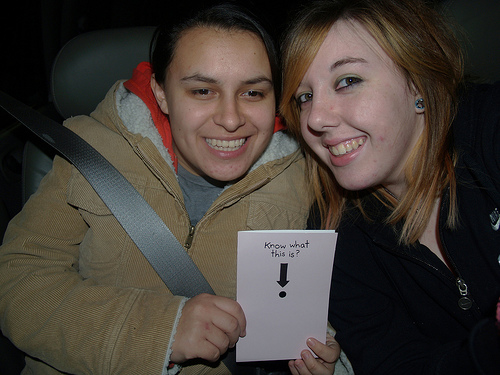 Know what
this is?